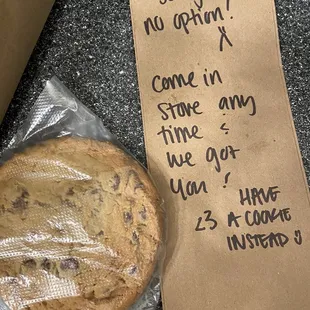 no option?
X
Come in
store any
time &
we got
you!
HAVE
<3 A COOKIE
INSTEAD